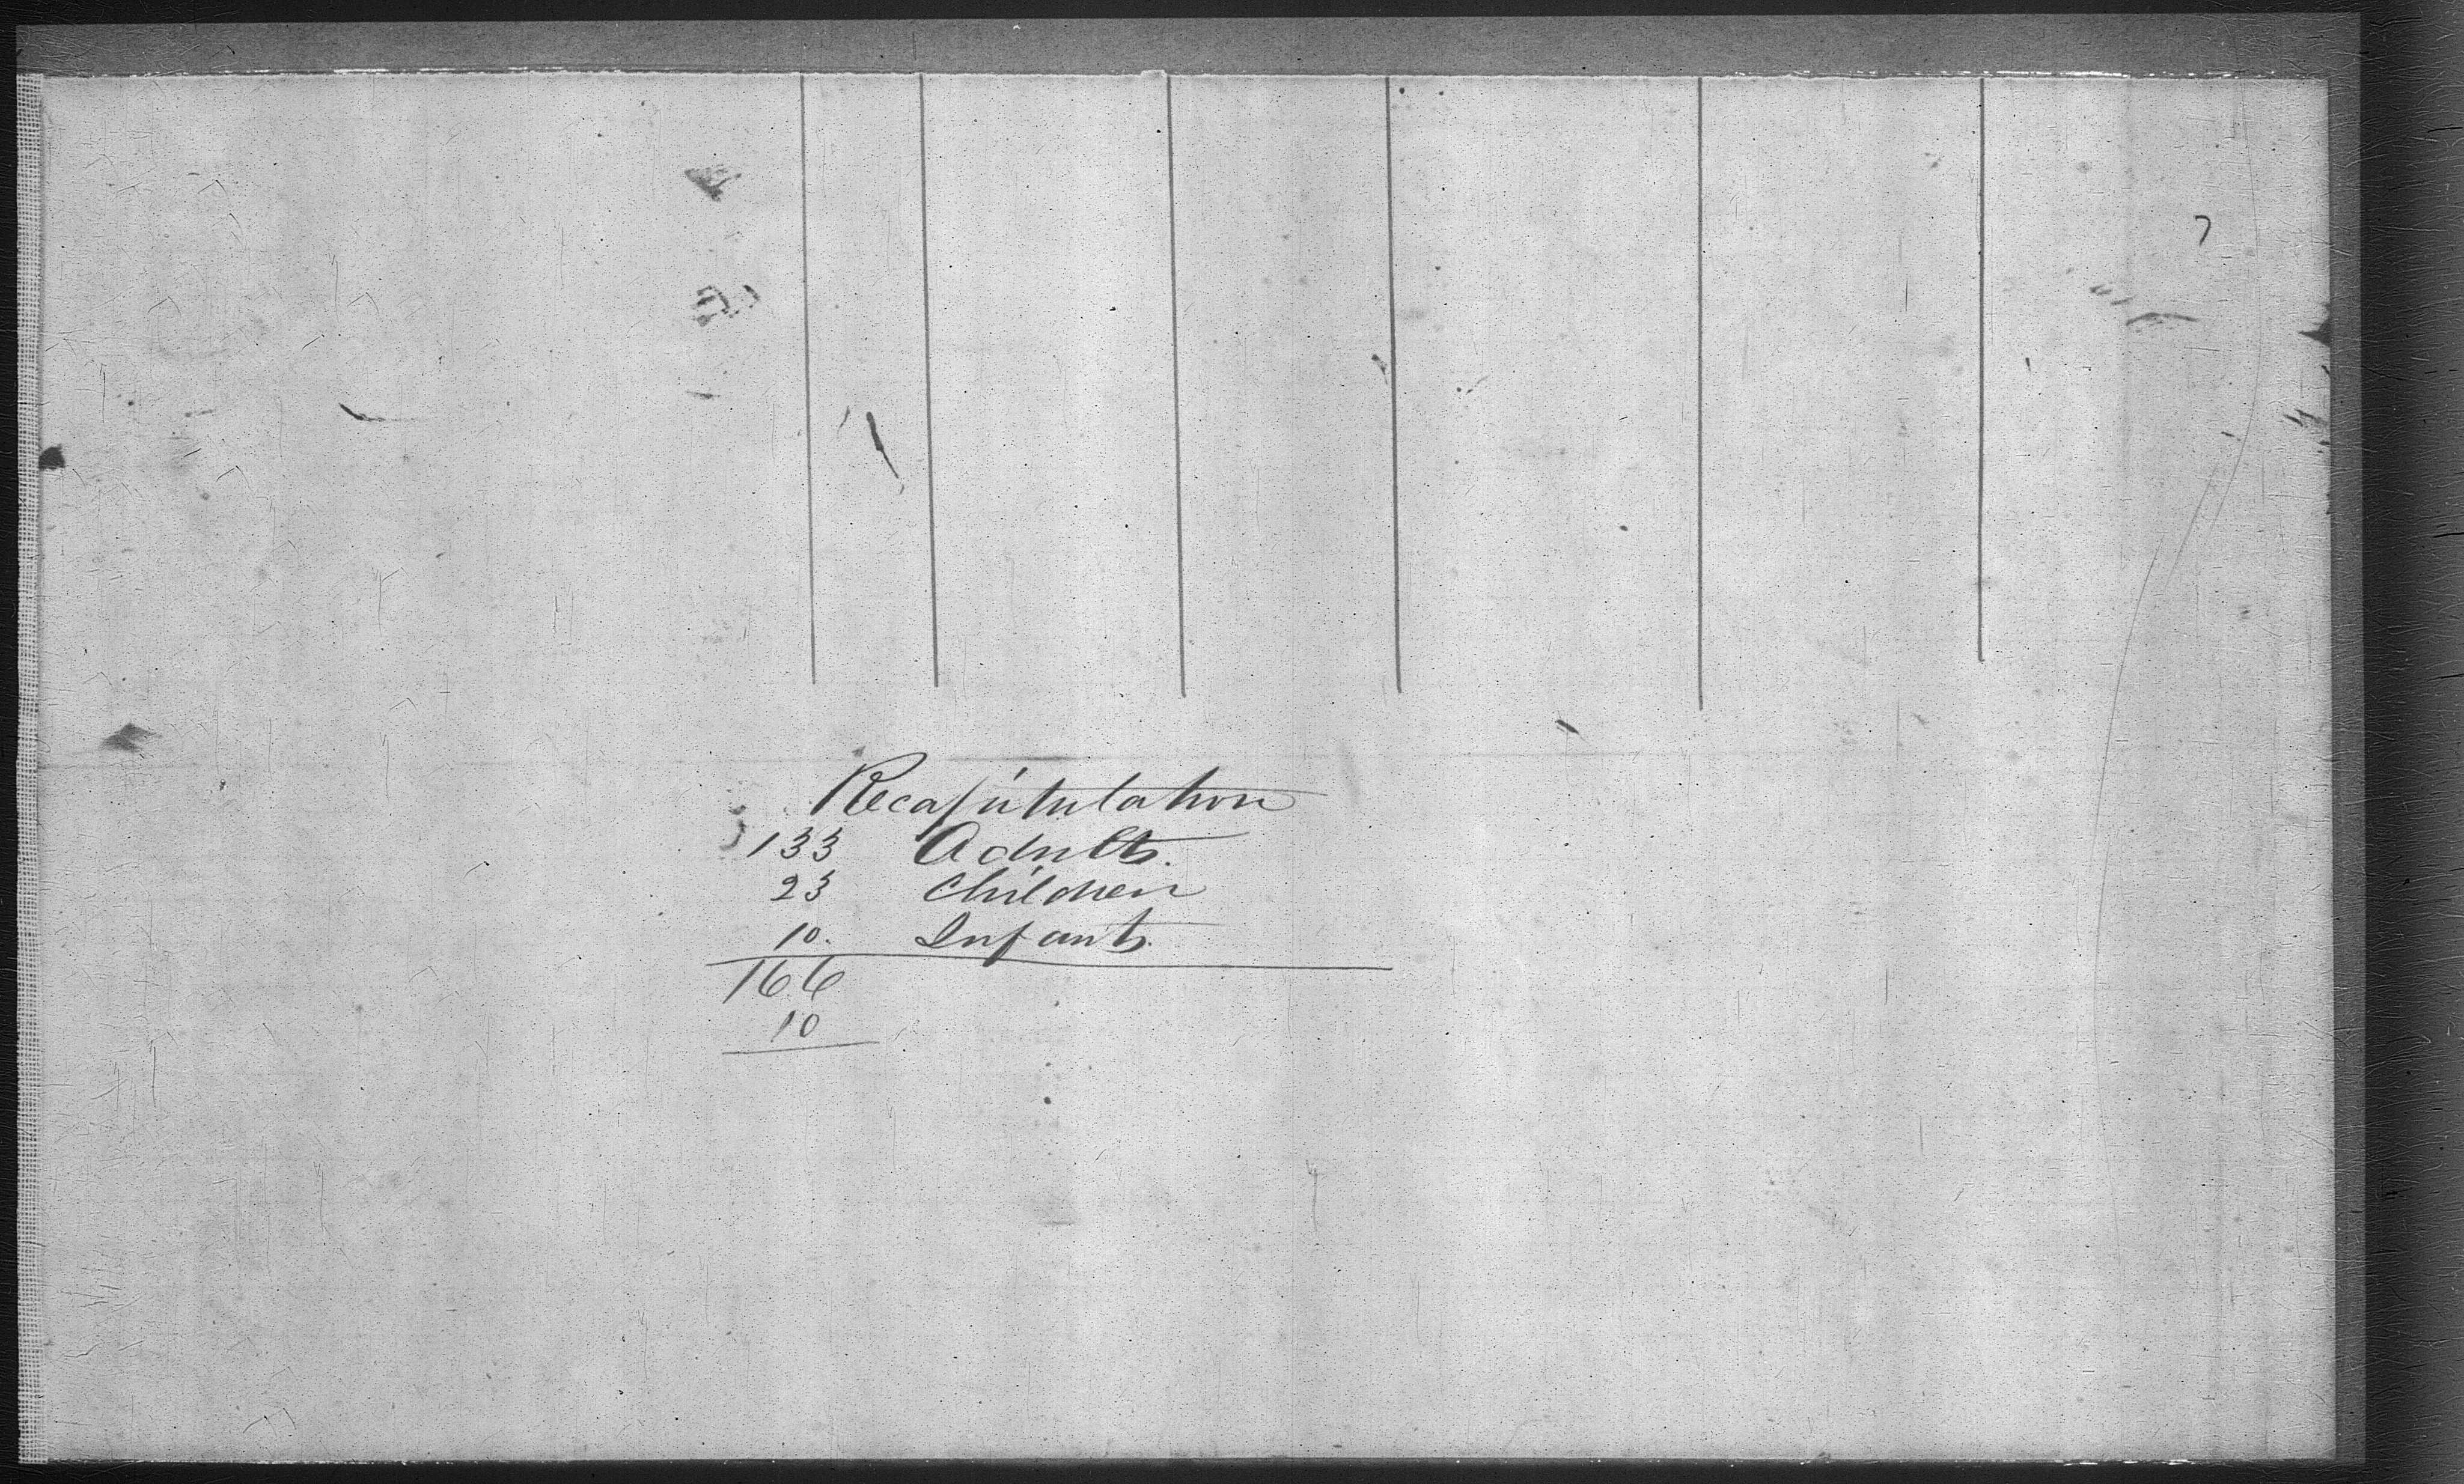 Recapitulation
133 Adults.
23 Children
10. Infants.
166
10